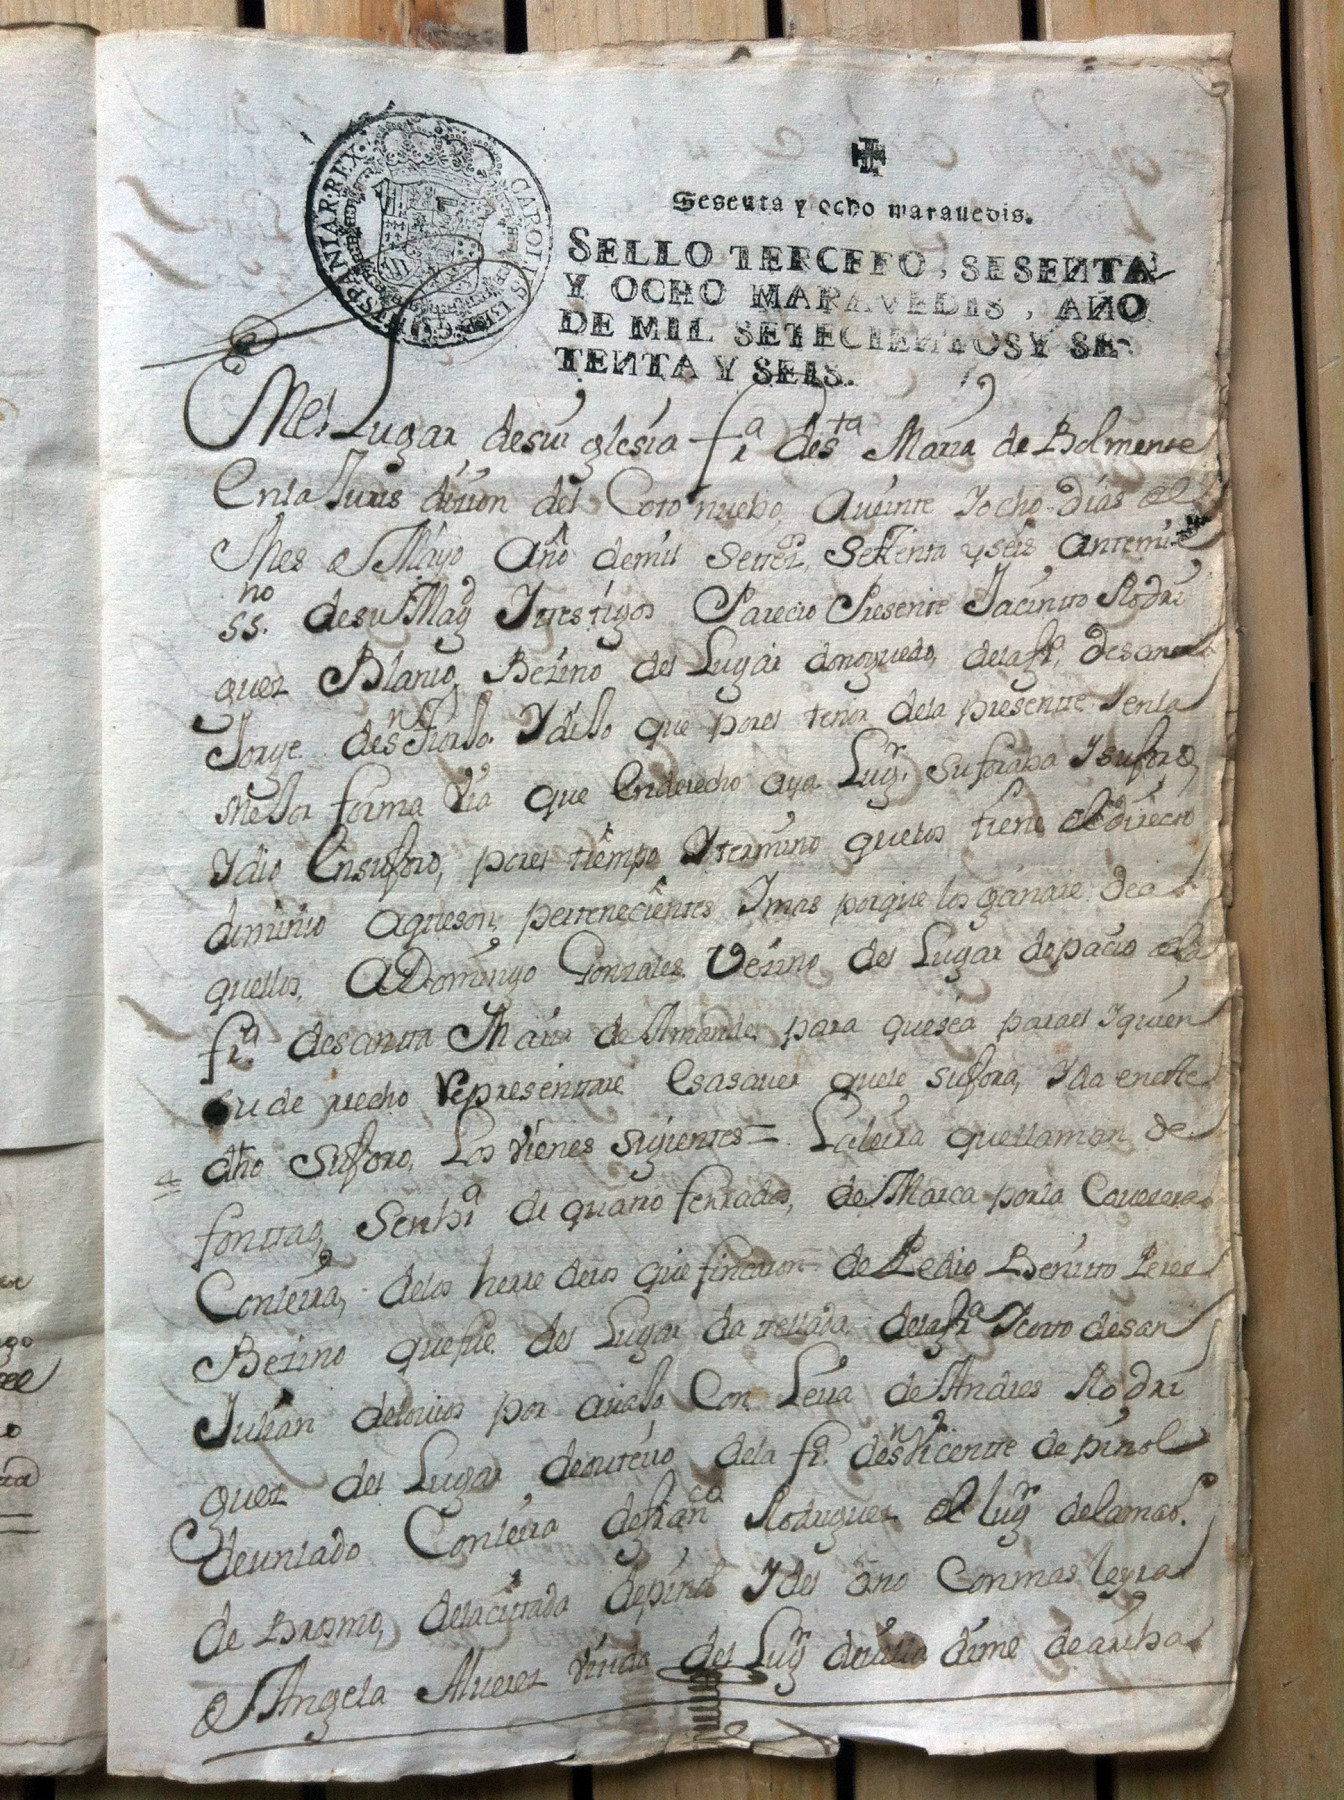 CAROLUS III D G HISPANIAR REX
Sesenta y ocho marauedis.
SELLO TERCERO, SESENTA
Y OCHO MARAVEDIS, AÑO
DE MIL SETECIENTOS Y SE-
TENTA Y SEIS.
Enel Lugar desu iglesia frª desta Maria de Bolmente
Enla Juris dizion del Coto nuebo, aueinte Jocho dias del
Mes de Mayo Año demil Settez.s Settenta y seis antemi
ssno. desu Magd Jttestigos Parecio Presente Jacintto Rodri
guez Blanco, Bezino del Lugar donoguedo, dela frª, desan
Jorge desn Jdiso que porel tenor dela presentte Jenla
Mesor forma Via que Enderecho aya Lugr. suforaba Jsuforo,
Jdio Ensuforo, porel tiempo Jtermino quelos tiene el direcio
diminio aqueson, perttenecientes Jmas porque los ganare dea
quellos, A Domingo Gonzales Vezino del Lugar depacio dela
frª desantta Maria de Amandi, para quesea parael Jquien
su de rrecho rrepresenttare Esasauer quele sufora, Jda eneste
dho suforo, Los vienes sigientes = Laleira quellaman de
fonttao, Senbrª de quatro ferrados, de Marca porla
Conleira, delos herre deros que fincaron de Pedro Benitto Perez
Bezino quefue del Lugar da rrellada delafrª Jcotto desan
Julian delouios por auaso Con Leira de Andres Rodri
guez del Lugar deouteiro dela frª desn Vicentte de pinol
deunlado Conleira defranco Rodriguez del lugr delamas.
de Brosmo, delacittada depinol Jdel otro Conmas leyra
de Angela Aluarez viuda del Lugr de dime dearriba